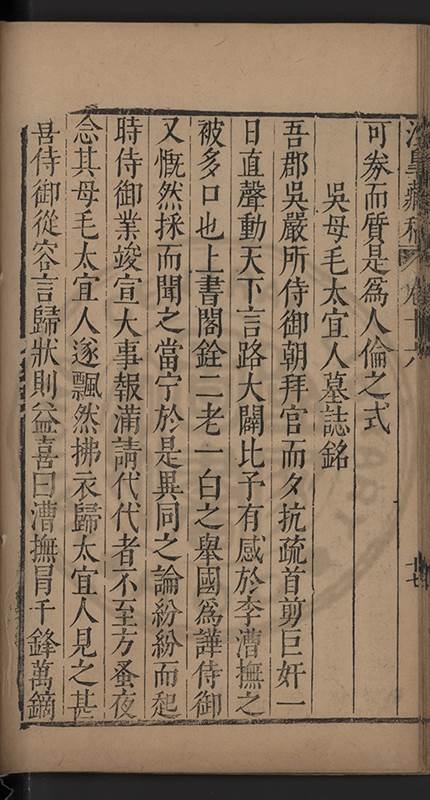 可劵而質是爲人倫之式
吳母毛太宜人墓誌銘
吾郡吳嚴所侍御朝拜官而夕抗疏首剪巨奸一
日直聲動天下言路大闢比予有感於李漕撫之
被多口也上書閣銓二老一白之舉國爲譁侍御
又慨然採而聞之當宁於是異同之論紛紛而起
時侍御業竣宣大事報滿請代代者不至方蚤夜
念其母毛太宜人遂飄然拂衣歸太宜人見之甚
喜侍御從容言歸狀則益喜曰漕撫冐千鋒萬鏑